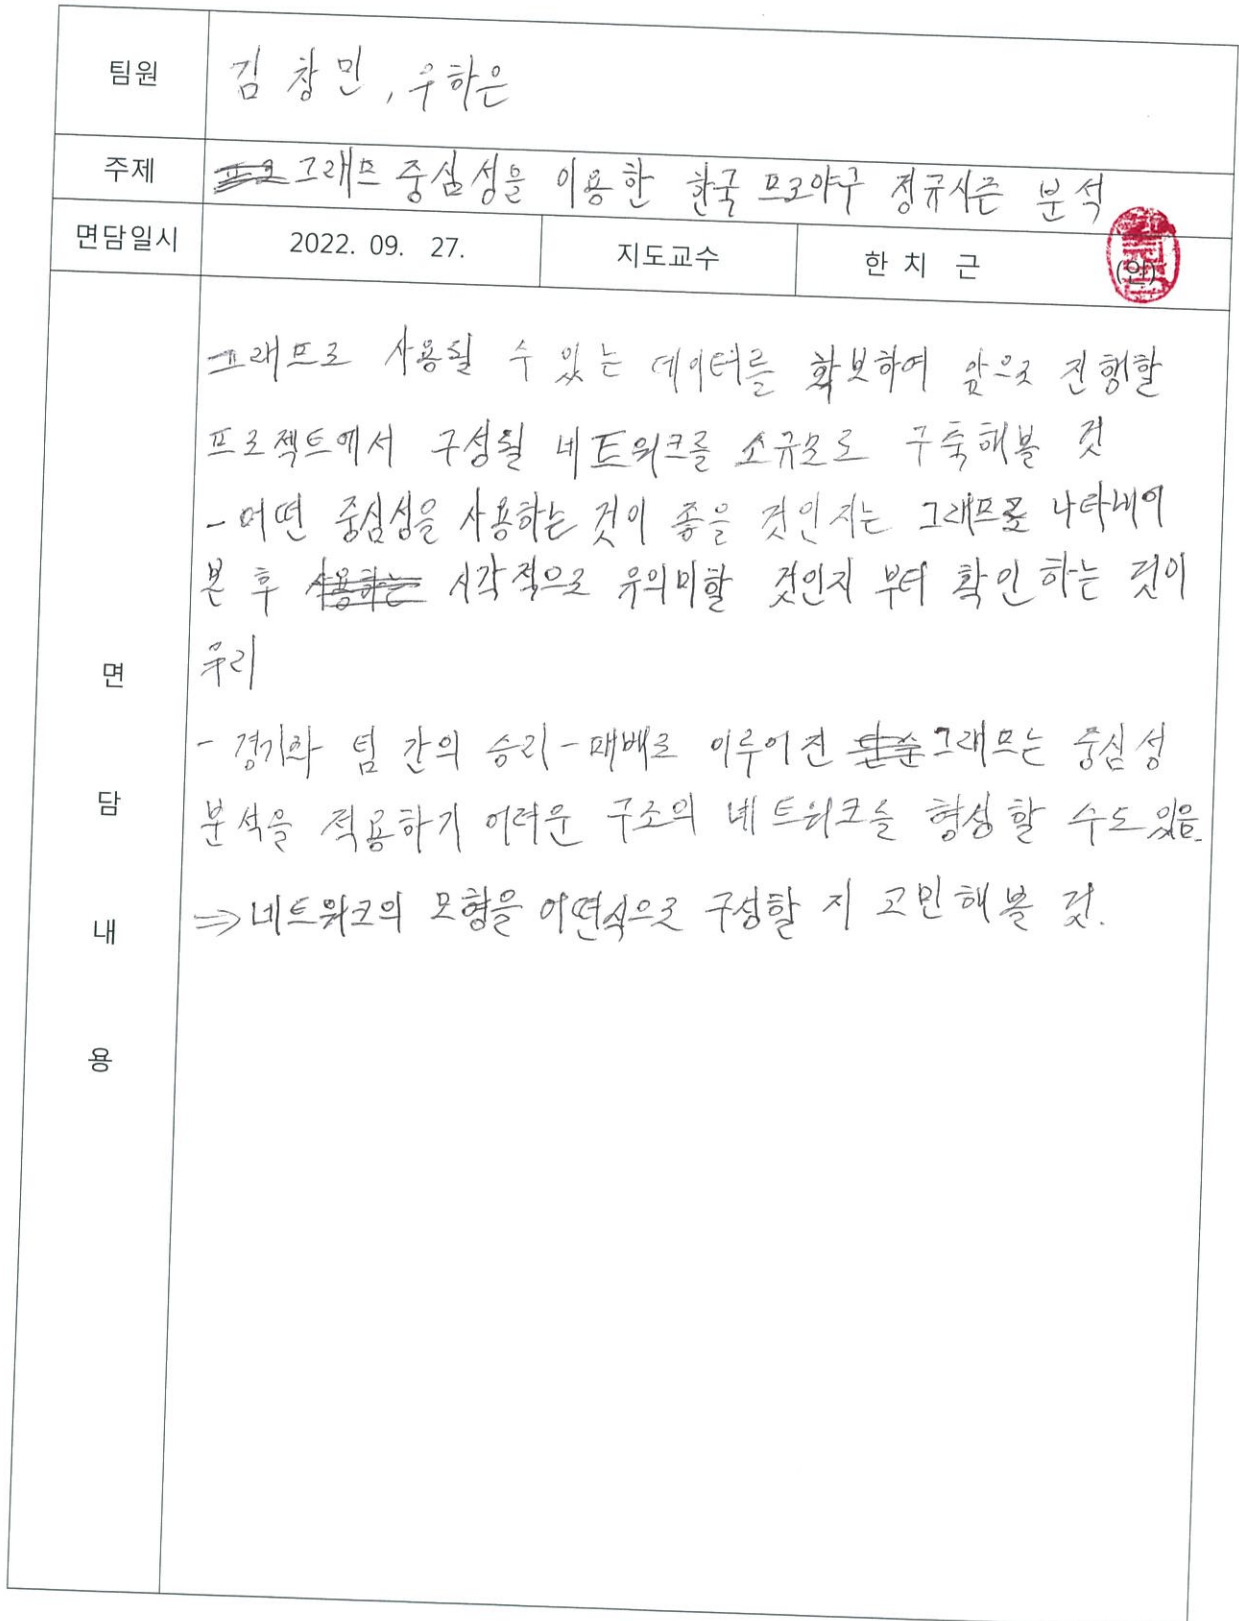 팀원 김창민, 우하은
주제 그래프 중심성을 이용한 한국 프로야구 정규시즌 분석
면담일시 2022. 09. 27. 지도교수 한 치 근 (인)
면담내용
그래프로 사용될 수 있는 데이터를 확보하여 앞으로 진행할
프로젝트에서 구성될 네트워크를 소규모로 구축해볼 것
- 어떤 중심성을 사용하는 것이 좋을 것인지는 그래프로 나타내어
본 후 사용하는 시각적으로 유의미할 것인지 부터 확인하는 것이
우리
- 경기와 팀 간의 승리-패배로 이루어진 단순 그래프는 중심성
분석을 적용하기 어려운 구조의 네트워크를 형성할 수도 있음.
⇒ 네트워크의 모형을 어떤식으로 구성할 지 고민해볼 것.